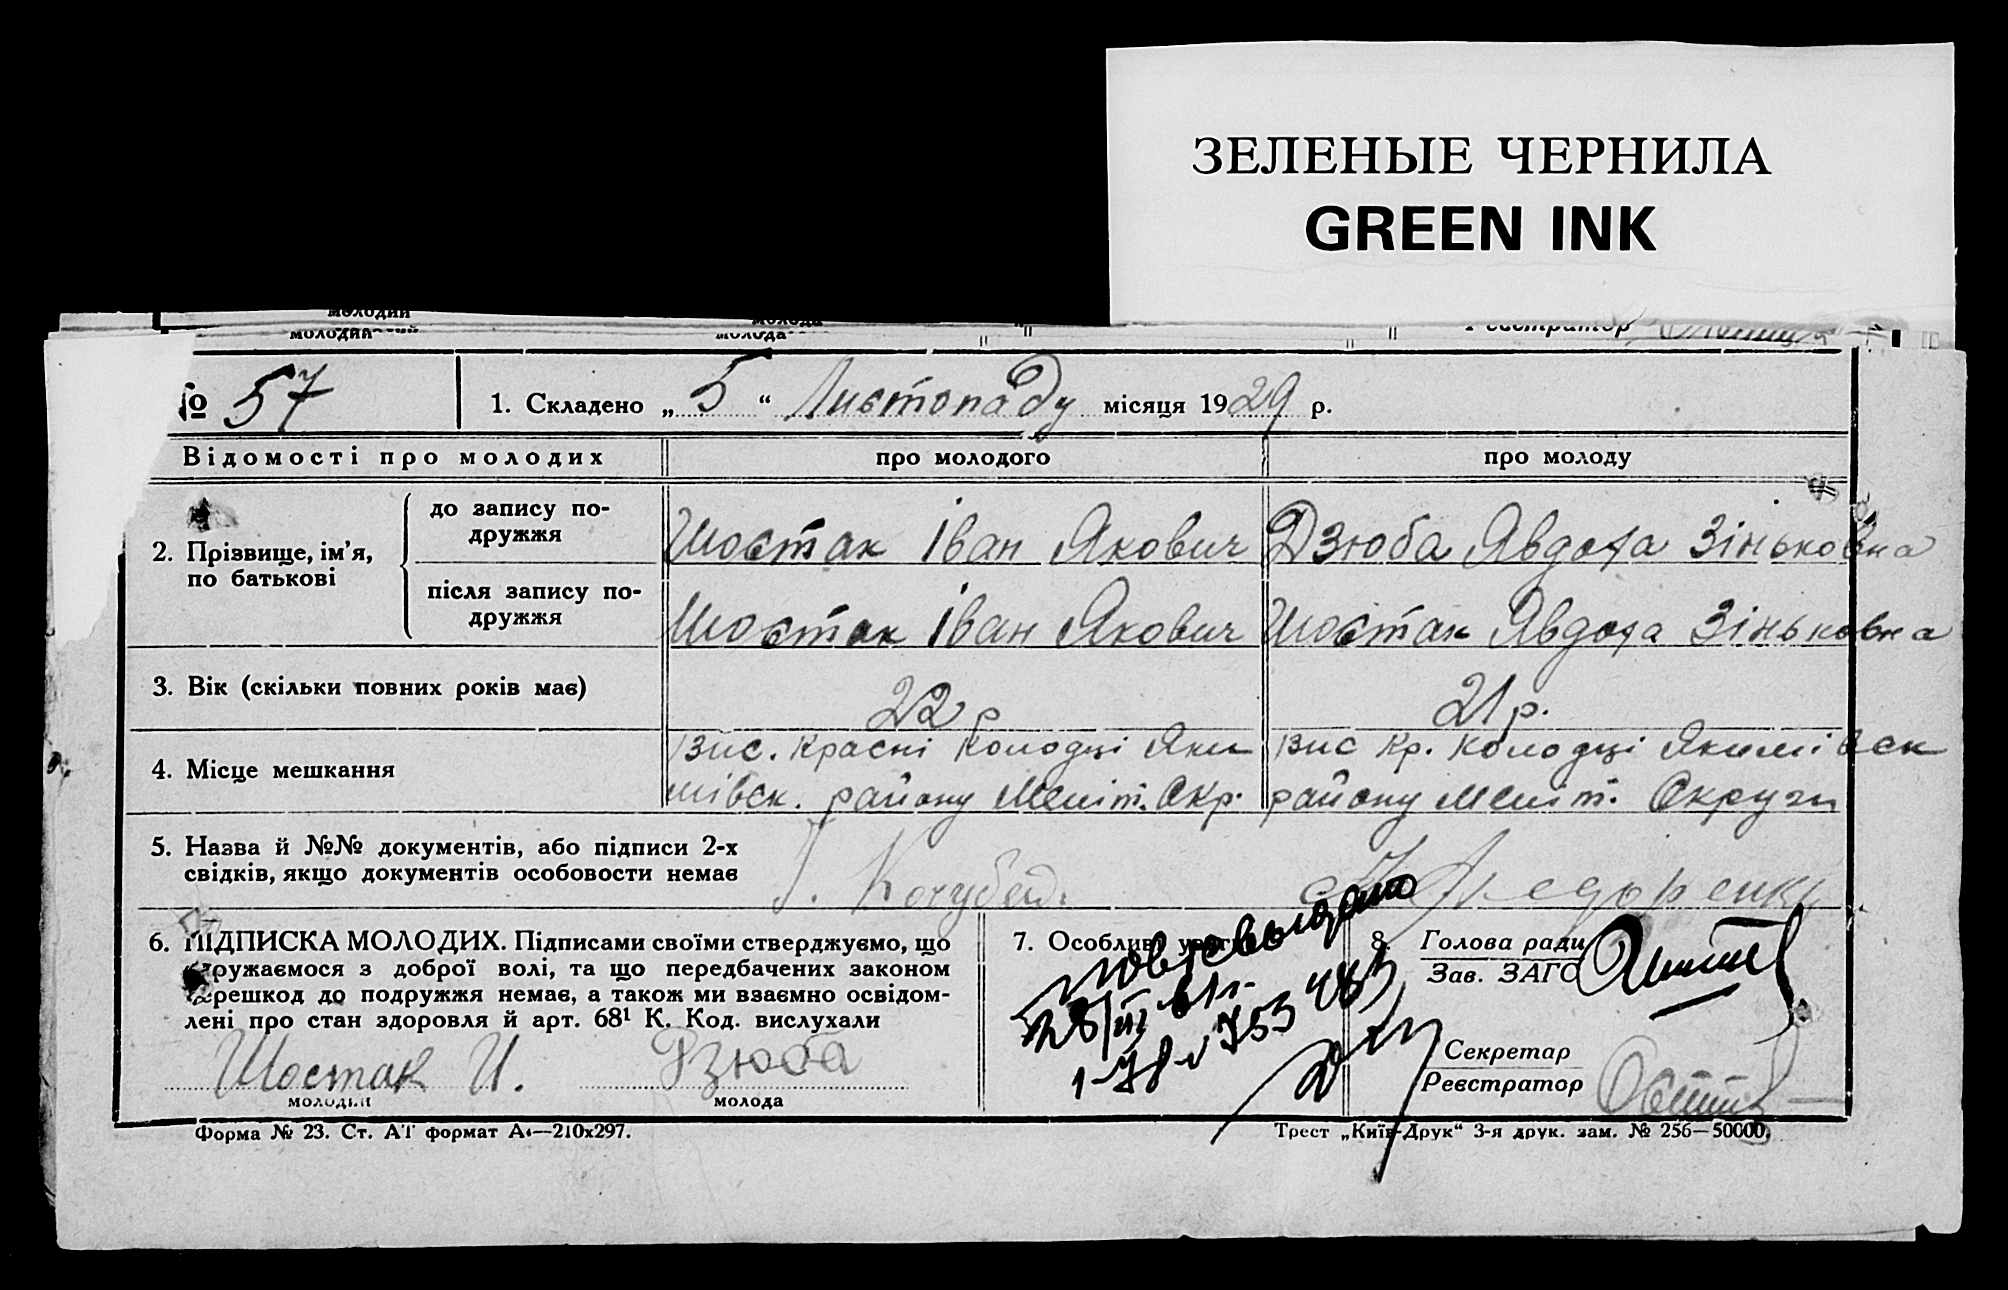 ЗЕЛЕНЫЕ ЧЕРНИЛА
GREEN INK
молодий
молодий
молода
Реєстратор
№ 57
1. Складено „ 5 “ Листопаду місяця 1929 р.
Відомості про молодих
про молодого
про молоду
2. Прізвище, ім’я,
по батькові
до запису по-
дружжя
Шостак Іван Якович
Дзюба Явдоха Зіньковна
після запису по-
дружжя
Шостак Іван Якович
Шостак Явдоха Зіньковна
3. Вік (скільки повних років має)
22 р
21 р.
4. Місце мешкання
вис. Красні Колодці Яки
мівск. району Меліт. Окр.
вис Кр. Колодці Якимівск
району Меліт. Округи
5. Назва й №№ документів, або підписи 2-х
свідків, якщо документів особовости немає
Кочубей
6. ПІДПИСКА МОЛОДИХ. Підписами своїми стверджуємо, що
одружаємося з доброї волі, та що передбачених законом
перешкод до подружжя немає, а також ми взаємно освідом-
лені про стан здоровля й арт. 68¹ К. Код. вислухали
Шостак И.
молодий
Дзюба
молода
7. Особливі
28/III
8. Голова ради
Зав. ЗАГС
Секретар
Реєстратор
Форма № 23. Ст. АТ формат А4—210х297.
Трест „Київ-Друк“ 3-я друк. зам. № 256—50000.